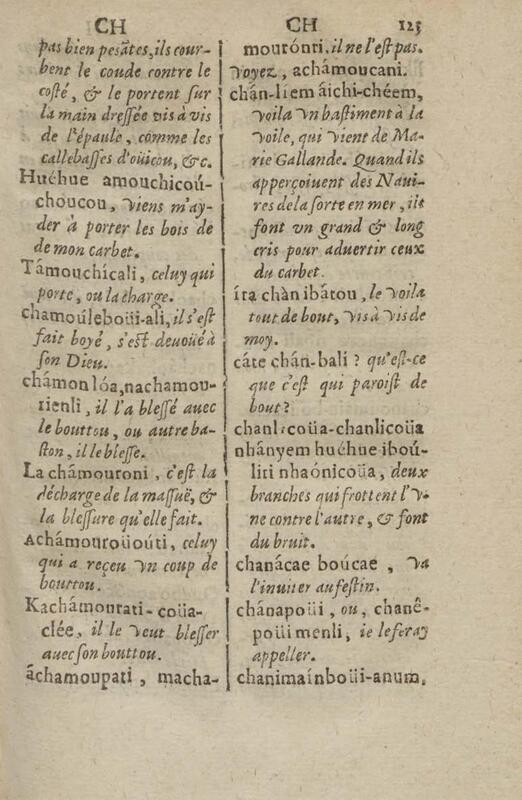 CH
pas bien pesãtes, ils cour-
bent le coude contre le
costé, & le portent sur
la main dressée vis à vis
de l'épaule, comme les
callebasses d'oüicou, &c.
Huéhue amouchicoú-
choucou, viens m'ay-
der à porter les bois de
de mon carbet.
Támouchícali, celuy qui
porte, ou la charge.
chamoúleboüi-ali, il s'est
fait boyé, s'est deuoüé à
son Dieu.
chámon lóa, nachamou-
rienli, il l'a blessé auec
le bouttou, ou autre ba-
ston, il le blesse.
La chámouroni, c'est la
décharge de la massuë, &
la blessure qu'elle fait.
Achámouroüoúti, celuy
qui a reçeu vn coup de
bouttou.
Kachámourati-coüa-
clée, il le veut blesser
auec son bouttou.
âchamoupati, macha-
CH 123
mourónti, il ne l'est pas.
voyez, achámoucani.
chán-liem âichi-chéem,
voila vn bastiment à la
voile, qui vient de Ma-
rie Gallande. Quand ils
apperçoiuent des Naui-
res de la sorte en mer, ils
font vn grand & long
cris pour aduertir ceux
du carbet.
íra chàn ibátou, le voila
tout de bout, vis à vis de
moy.
cáte chán-bali? qu'est-ce
que c'est qui paroist de
bout?
chanlicoüa-chanlicoüa
nhányem huéhue iboú-
liri nhaónicoüa, deux
branches qui frottent l'v-
ne contre l'autre, & font
du bruit.
chanácae boúcae, va
l'inuiter au festin.
chánapoüi, ou, chanê-
poüi menli, ie le feray
appeller.
chanimaínboüi-anum,